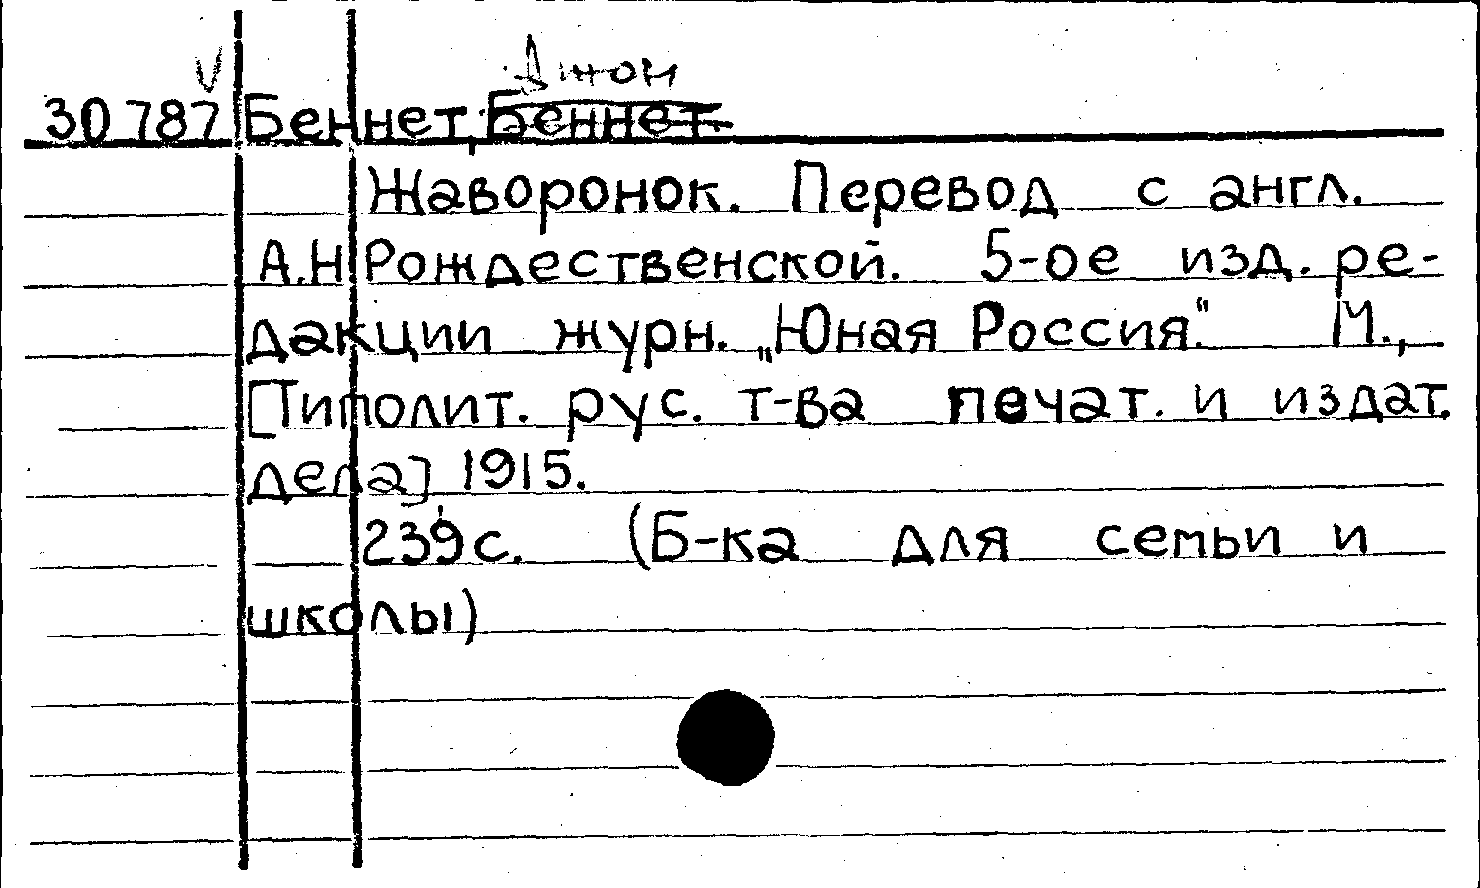 Джон
30787 Беннет, Беннет
Жаворонок. Перевод с англ.
А.Н Рождественской. 5-ое изд. ре-
дакции журн. „Юная Россия". М.,
[Типолит. рус. т-ва печат. и издат.
дела] 1915.
239 с. (Б-ка для семьи и
школы)